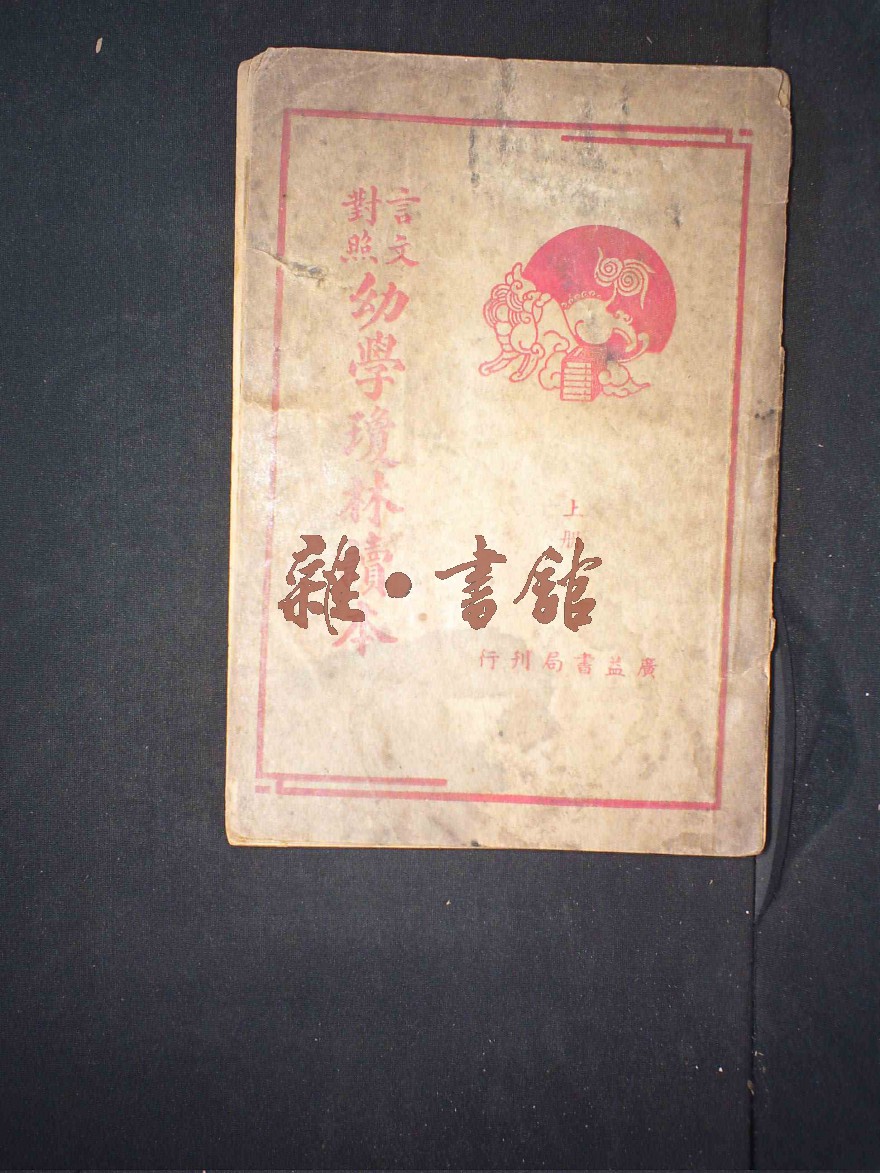 言文
對照
幼學瓊林讀本
上册
廣益書局刊行
雜·書館